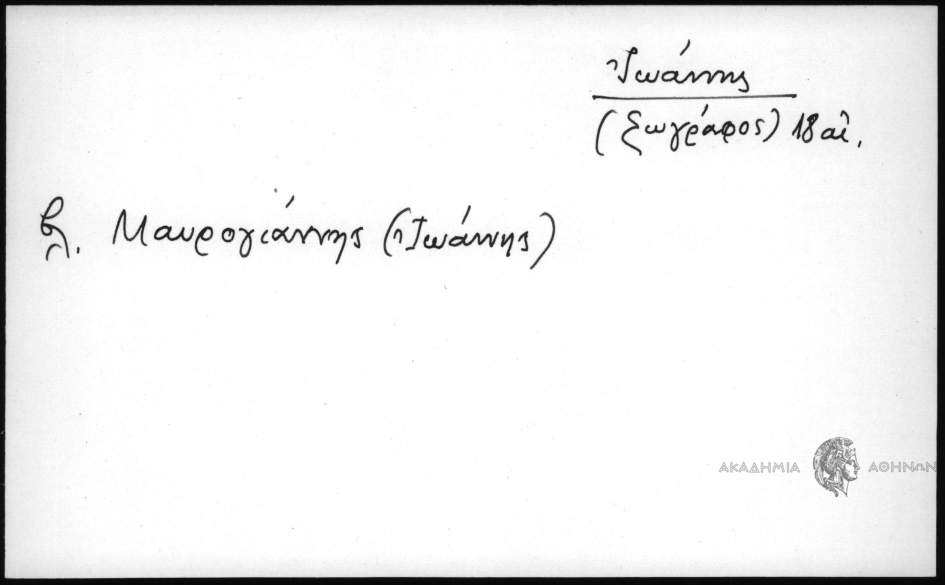 Ἰωάννης
(ζωγράφος) 18 αἰ.
βλ. Μαυρογιάννης (Ἰωάννης)
ΑΚΑΔΗΜΙΑ ΑΘΗΝΩΝ